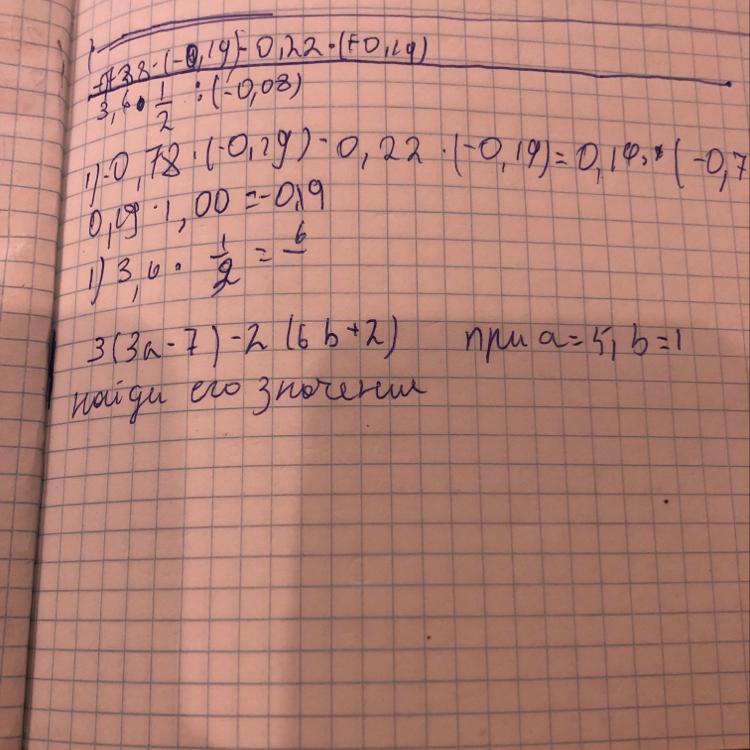 -0,78·(-0,19)-0,22·(-0,19)
3,6·1/2 : (-0,08)
1)-0,78·(-0,19)-0,22·(-0,19)=0,19·(-0,7
0,19·1,00=-0,19
1) 3,6·1/2=6/
3(3a-7)-2(6b+2) при a=5, b=1
найди его значения